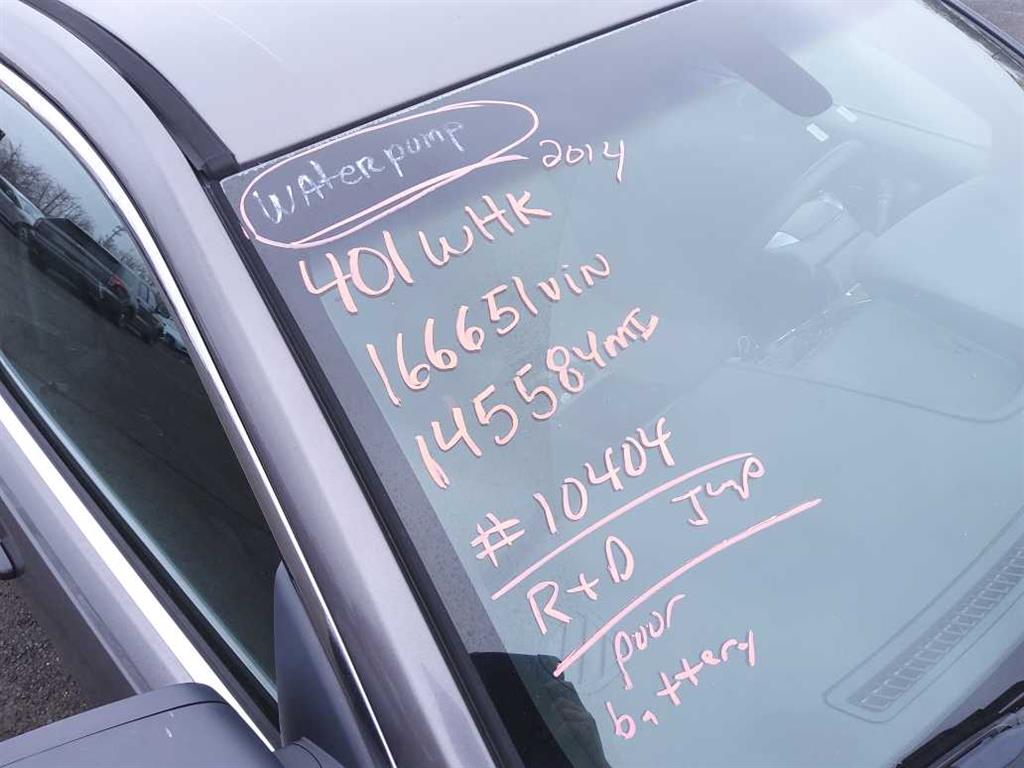 waterpump
2014
401WHK
166651vin
145584mI
#10404
Jmp
R+D
poor
battery